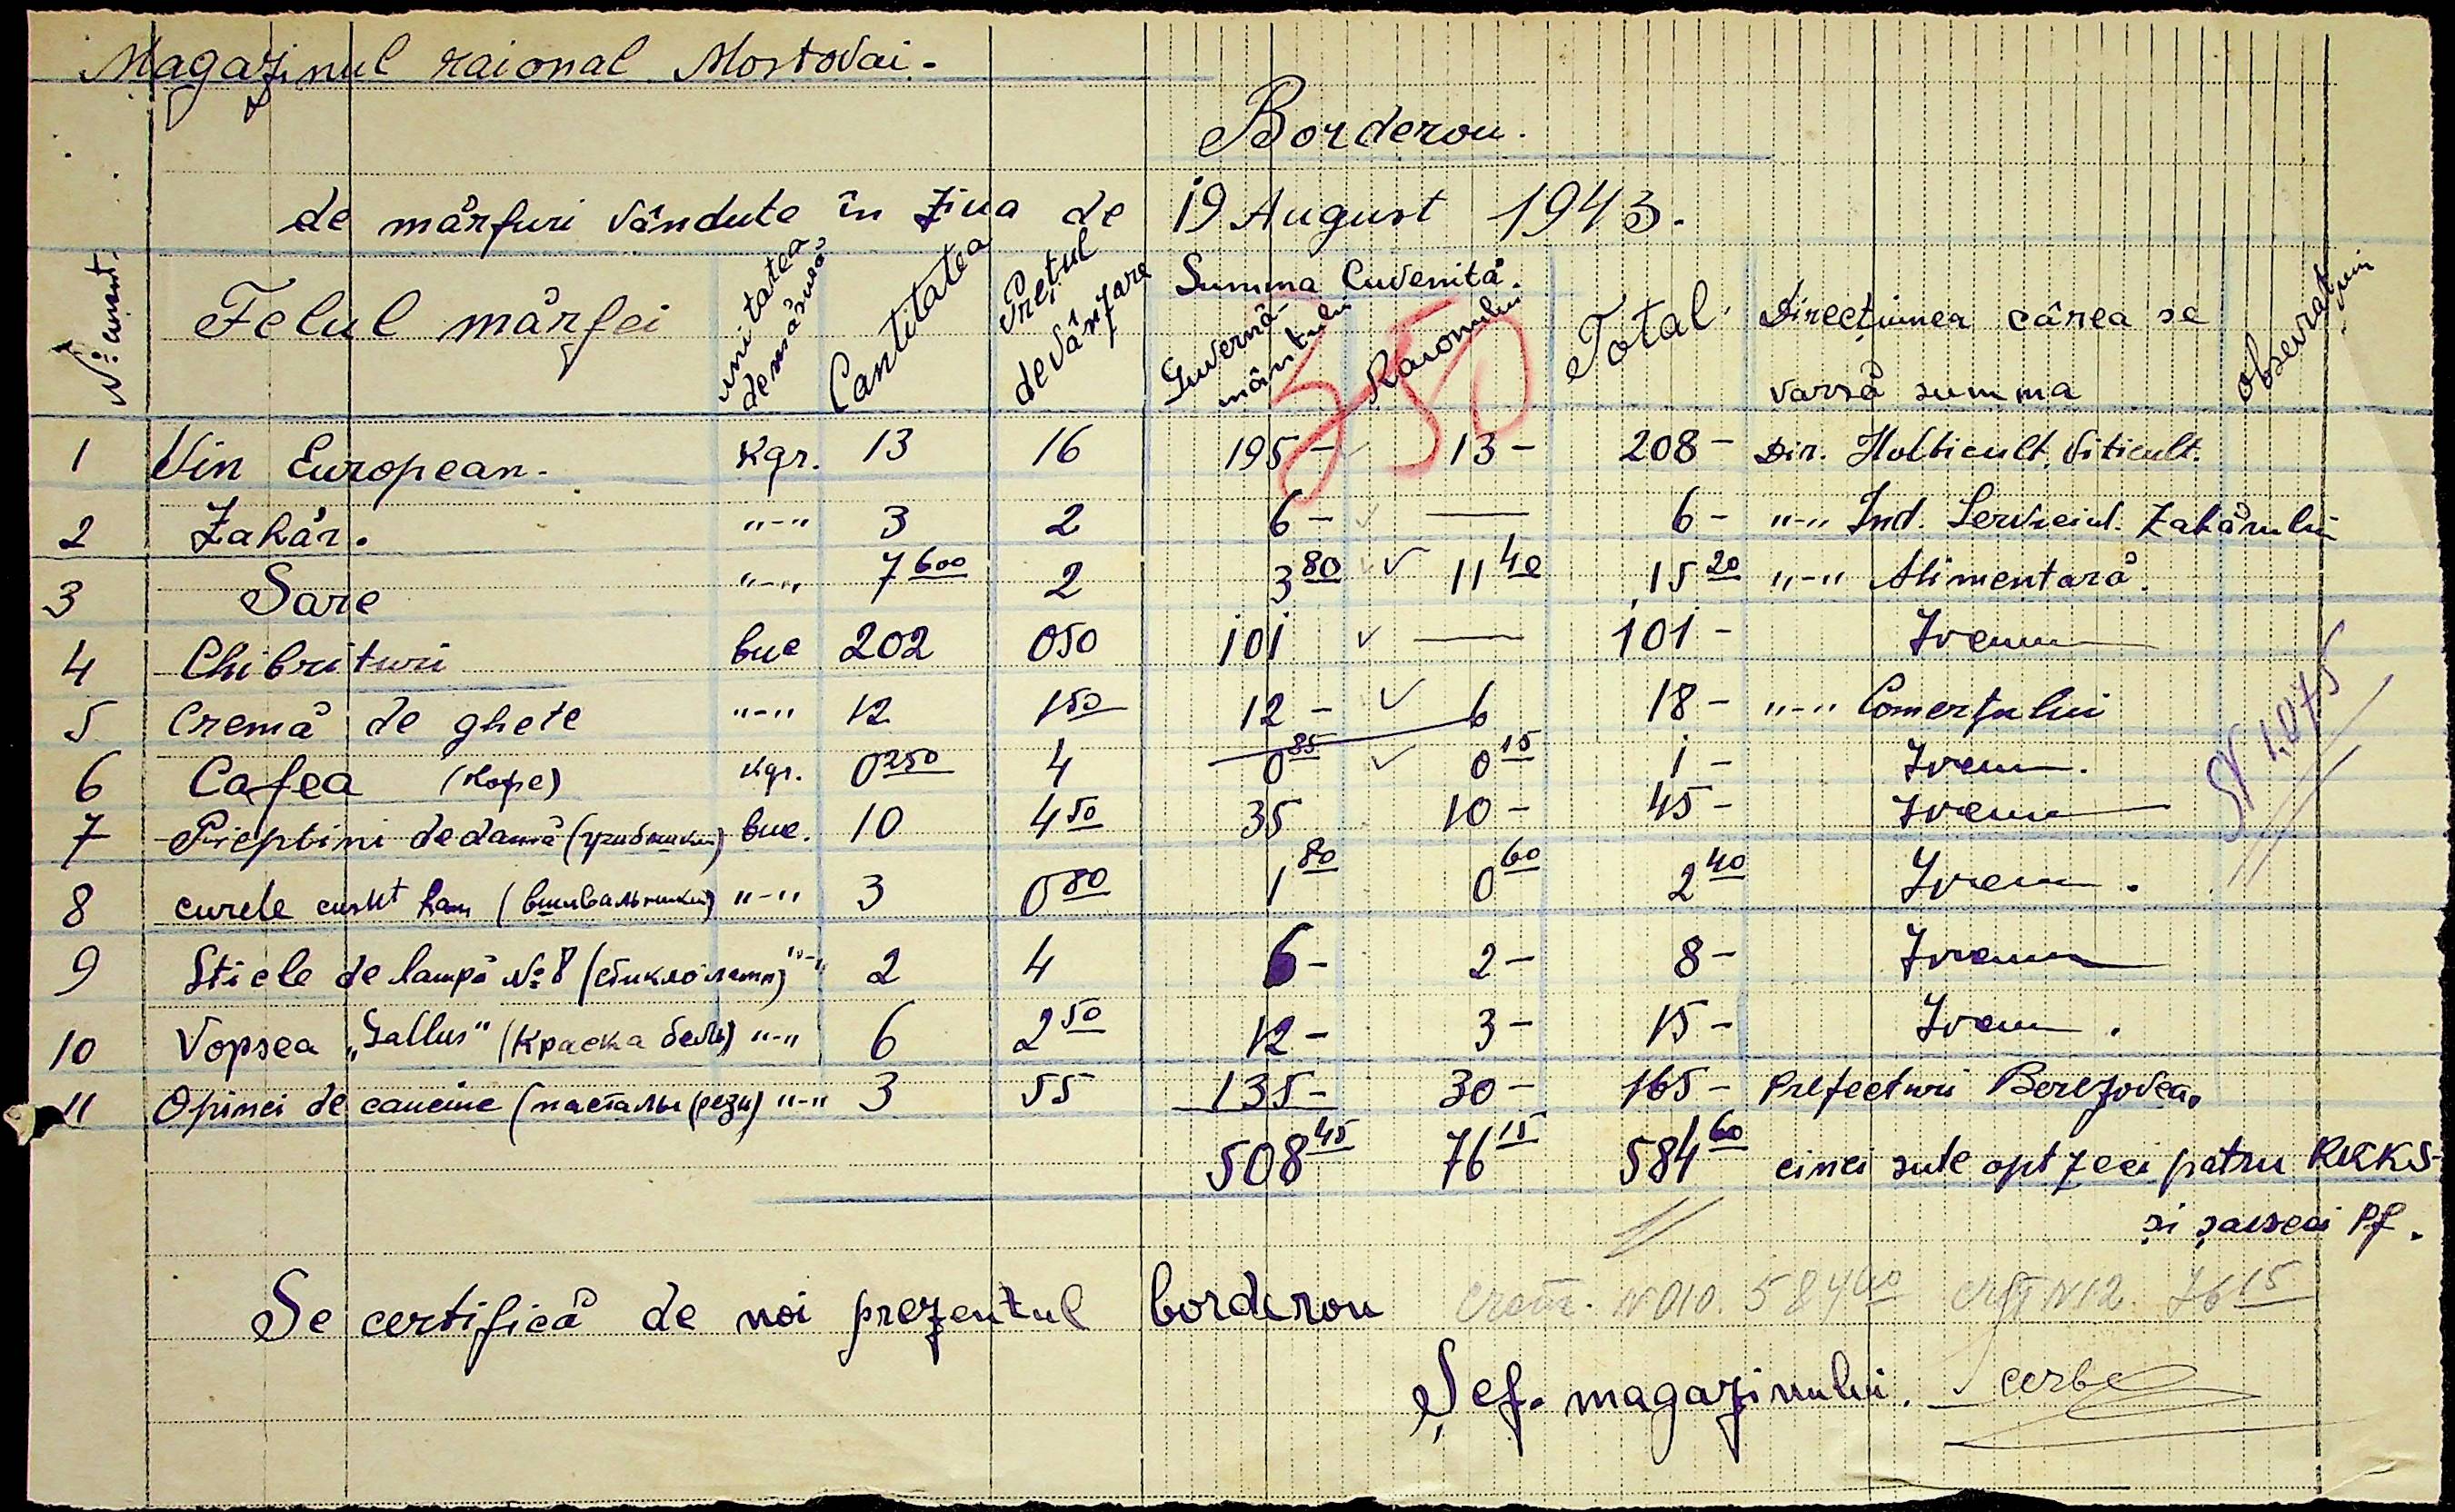 Magazinul raional Mostovai.-
Borderou.
de mărfuri vândute în ziua de 19 August 1943.
№ curent. Felul mărfei unitatea de măsură Cantitatea Prețul de vânzare Summa Cuvenită. Guvernă-mântului Raionului Total Direcțiunea cărea se varsă summa observațiuni
350
1 Vin European. kgr. 13 16 195 - 13 - 208 - Dir. Holticult. Viticult.
2 Zahăr. "-" 3 2 6 - — 6 - "-" Ind. Serviciul. Zahărului
3 Sare "-" 7 600 2 3 80 11 40 15 20 "-" Alimentară.
4 Chibrituri buc 202 050 101 — 101 - Idem
5 Cremă de ghete "-" 12 1 50 12 - 6 18 - "-" Comerțului
6 Cafea (кофе) kgr. 0 250 4 0 85 0 15 1 - Idem.
7 Pieptini de damă buc. 10 4 50 35 10 - 45 - Idem
8 curele "-" 3 0 80 1 80 0 60 2 40 Idem.
9 Sticle de lampă № 8 "-" 2 4 6 - 2 - 8 - Idem
10 Vopsea „Gallus" (Краска бель) "-" 6 2 50 12 - 3 - 15 - Idem.
11 Opinci de cauciuc (пасталы (рези) "-" 3 55 135 - 30 - 165 - Prefecturi Berezovca.
№ 1,075
508 45 76 15 584 60 cinci sute opt zeci patru RKKS-
și șaizeci Pf.
Se certifică de noi prezentul borderou
№ 010. 584 60 № 12 76 15
Șef. magazinului.